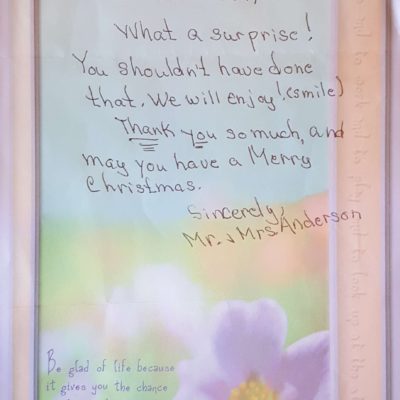 What a surprise!
You shouldn't have done
that. We will enjoy! (smile)
Thank you so much, and
may you have a Merry
Christmas.
Sincerely,
Mr. & Mrs. Anderson
Be glad of life because
it gives you the chance
to work and to play and to look up at the